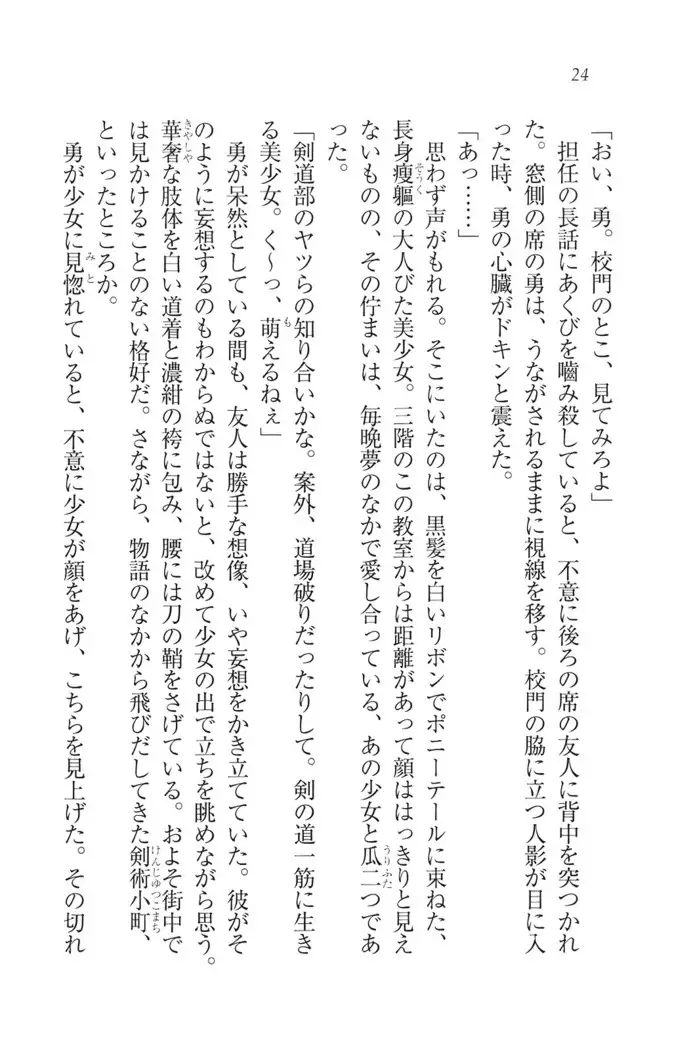 24
「おい、勇。校門のとこ、見てみろよ」
担任の長話にあくびを嚙み殺していると、不意に後ろの席の友人に背中を突つかれ
た。窓側の席の勇は、うながされるままに視線を移す。校門の脇に立つ人影が目に入
った時、勇の心臓がドキンと震えた。
「あっ……」
思わず声がもれる。そこにいたのは、黒髪を白いリボンでポニーテールに束ねた、
長身痩軀の大人びた美少女。三階のこの教室からは距離があって顔ははっきりと見え
ないものの、その佇まいは、毎晩夢のなかで愛し合っている、あの少女と瓜二つであ
った。
「剣道部のヤツらの知り合いかな。案外、道場破りだったりして。剣の道一筋に生き
る美少女。く〜っ、萌えるねぇ」
勇が呆然としている間も、友人は勝手な想像、いや妄想をかき立てていた。彼がそ
のように妄想するのもわからぬではないと、改めて少女の出で立ちを眺めながら思う。
華奢な肢体を白い道着と濃紺の袴に包み、腰には刀の鞘をさげている。およそ街中で
は見かけることのない格好だ。さながら、物語のなかから飛びだしてきた剣術小町、
といったところか。
勇が少女に見惚れていると、不意に少女が顔をあげ、こちらを見上げた。その切れ